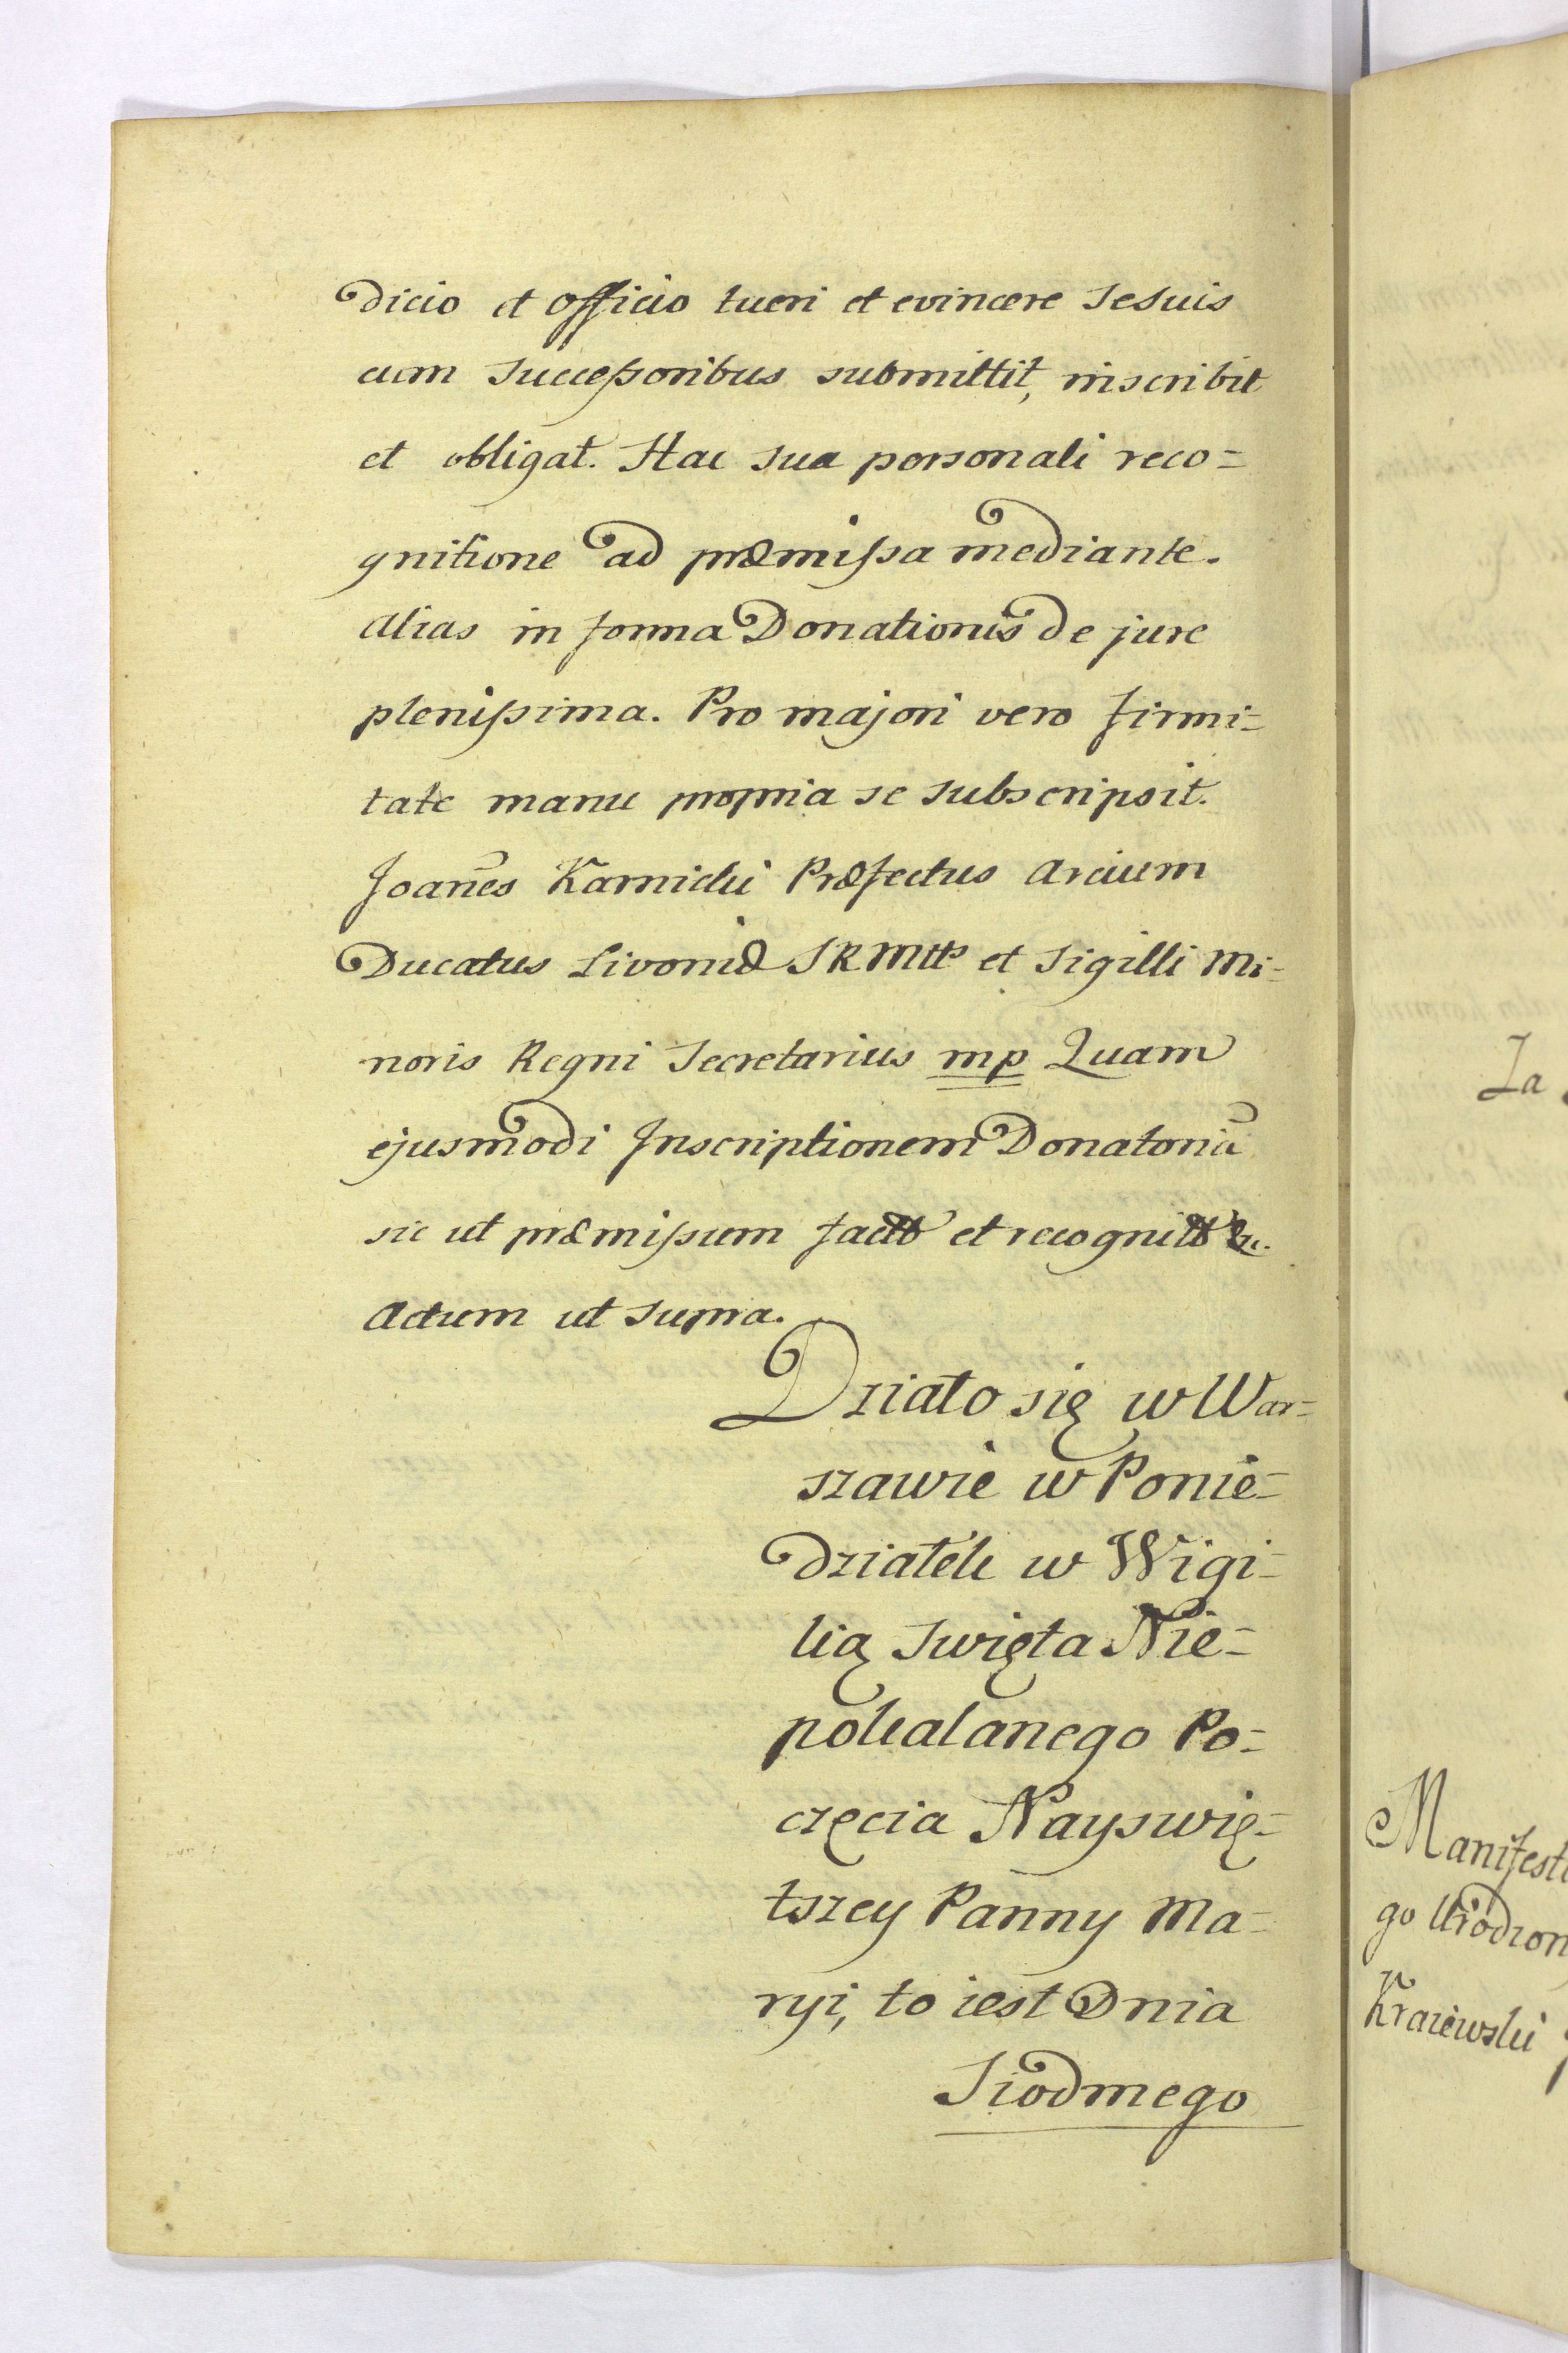 dicio et officio tueri et evincere Se Suis
cum Successoribus submittit, inscribit
et obligat. Hac sua personali reco=
gnitione ad præmissa mediante.
Alias in forma Donationis de jure
plenissima. Pro majori vero firmi=
tate manu propria se subscripsit.
Joanes Karnicki Præfectus Arcium
Ducatus Livoniæ SRMtts et Sigilli Mi=
noris Regni Secretarius mp Quam
ejusmodi Inscriptionem Donatoriã
sic ut præmissum factt et recognitt &c.
Actum ut Supra.
Działo się w War=
szawie w Ponie=
działek w Wigi=
lią Swięta Nie=
pokalanego Po=
częcia Nayswię=
tszey Panny Ma=
ryi, to iest Dnia
Siodmego
Za
Manifest
go Urodzon
Kraiewski